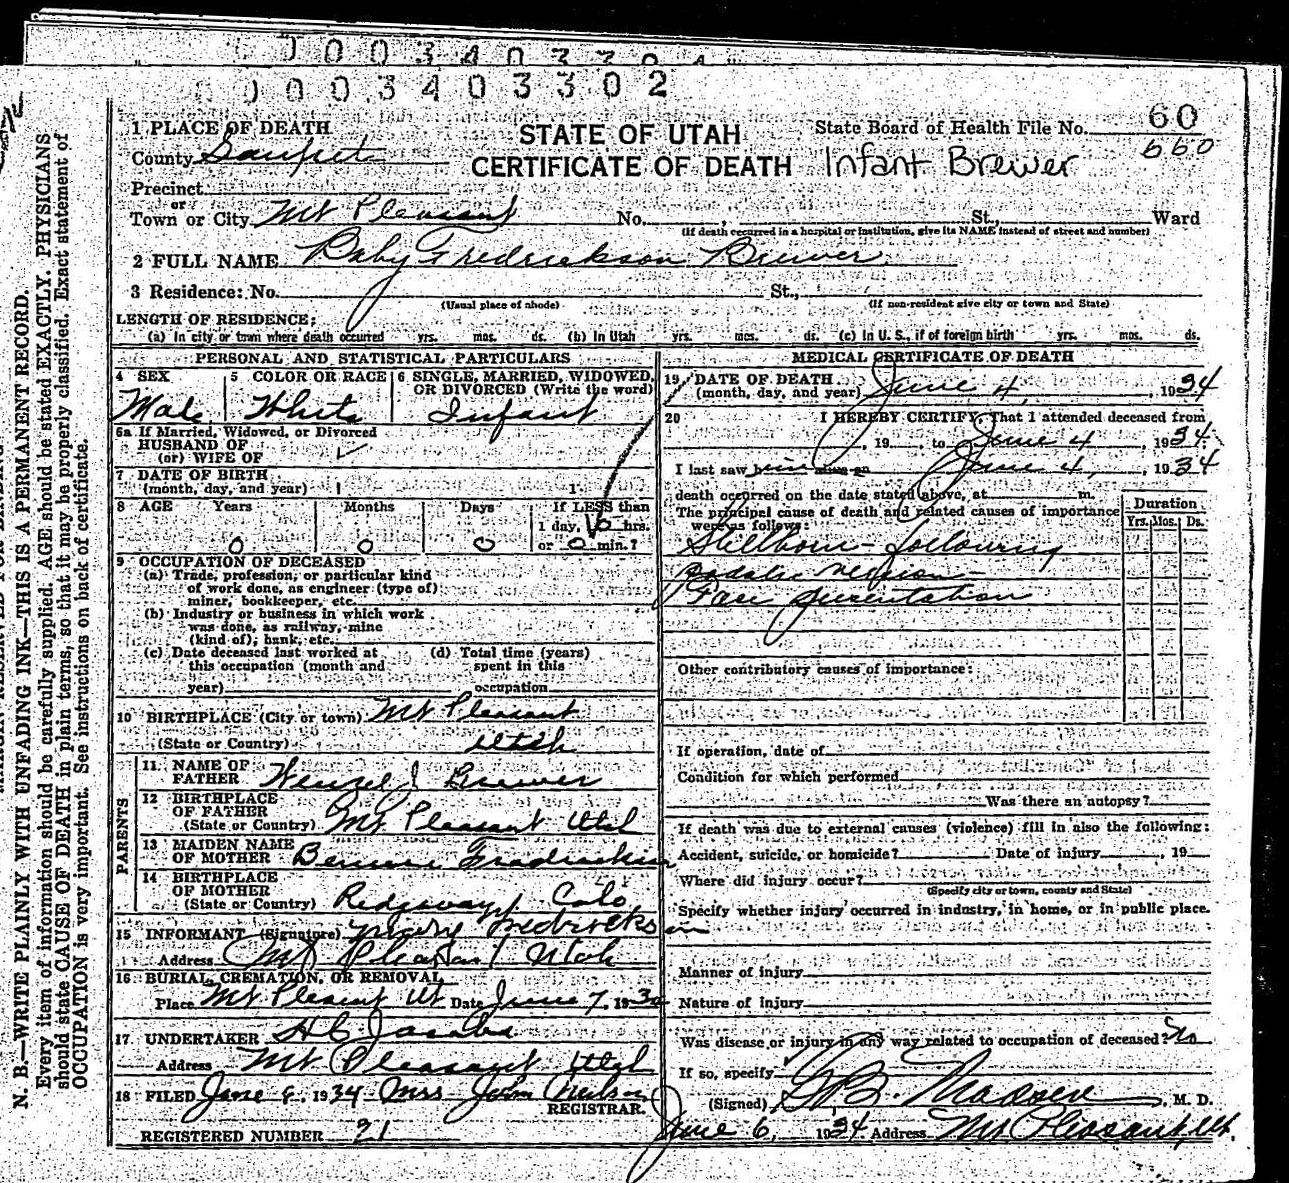 0003403302
1 PLACE OF DEATH
STATE OF UTAH
CERTIFICATE OF DEATH
State Board of Health File No. 60
660
Infant Brewer
County Sanpete
Precinct
or
Town or City Mt Pleasant No. , St., Ward
(If death occurred in a hospital or institution, give its NAME instead of street and number)
2 FULL NAME Baby Fredrickson Brewer
3 Residence: No. St.,
(Usual place of abode) (If non-resident give city or town and State)
LENGTH OF RESIDENCE:
(a) In city or town where death occurred yrs. mos. ds. (b) In Utah yrs. mos. ds. (c) In U. S., if of foreign birth yrs. mos. ds.
PERSONAL AND STATISTICAL PARTICULARS
4 SEX 5 COLOR OR RACE 6 SINGLE, MARRIED, WIDOWED,
OR DIVORCED (Write the word)
Male White Infant
6a If Married, Widowed, or Divorced
HUSBAND OF
(or) WIFE OF
7 DATE OF BIRTH
(month, day, and year)
8 AGE Years Months Days If LESS than
1 day, 0 hrs.
0 0 0 or 0 min.?
9 OCCUPATION OF DECEASED
(a) Trade, profession, or particular kind
of work done, as engineer (type of)
miner, bookkeeper, etc.
(b) Industry or business in which work
was done, as railway, mine
(kind of), bank, etc.
(c) Date deceased last worked at (d) Total time (years)
this occupation (month and spent in this
year) occupation
10 BIRTHPLACE (City or town) Mt Pleasant
(State or Country) Utah
PARENTS
11 NAME OF
FATHER Wenzel J Brewer
12 BIRTHPLACE
OF FATHER
(State or Country) Mt Pleasant Utah
13 MAIDEN NAME
OF MOTHER Fredrickson
14 BIRTHPLACE
OF MOTHER
(State or Country) Redgway Colo
15 INFORMANT (Signature) Mary Fredrickson
Address Mt Pleasant Utah
16 BURIAL, CREMATION, OR REMOVAL
Place Mt Pleasant Ut Date June 7, 193
17 UNDERTAKER H C Jacobs
Address Mt Pleasant Utah
18 FILED June 8, 1934 Mrs John Neilson
REGISTRAR.
REGISTERED NUMBER 21
MEDICAL CERTIFICATE OF DEATH
19 DATE OF DEATH
(month, day, and year) June 4, 1934
20 I HEREBY CERTIFY, That I attended deceased from
, 19 , to June 4, 1934
I last saw him alive on June 4, 1934
death occurred on the date stated above, at m.
The principal cause of death and related causes of importance
were as follows:
Duration
Yrs. Mos. Ds.
Stillborn - following
podalic version
Face presentation
Other contributory causes of importance:
If operation, date of
Condition for which performed
Was there an autopsy?
If death was due to external causes (violence) fill in also the following:
Accident, suicide, or homicide? Date of injury , 19
Where did injury occur?
(Specify city or town, county and State)
Specify whether injury occurred in industry, in home, or in public place.
Manner of injury
Nature of injury
Was disease or injury in any way related to occupation of deceased? No
If so, specify
(Signed) Madsen, M. D.
June 6, 1934 Address Mt Pleasant, Ut.
N. B.—WRITE PLAINLY WITH UNFADING INK—THIS IS A PERMANENT RECORD.
Every item of information should be carefully supplied. AGE should be stated EXACTLY. PHYSICIANS
should state CAUSE OF DEATH in plain terms, so that it may be properly classified. Exact statement of
OCCUPATION is very important. See instructions on back of certificate.